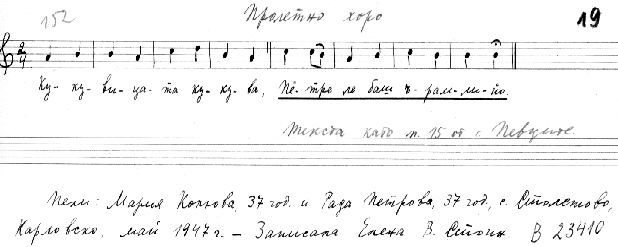 152 Пролетно хоро 19
Ку- ку- ви- ца- та ку- ку- ва, Пе- тре ле баш ъ- рам- ми- йо.
Текста като н. 15 от с. Певците.
Пели: Мария Конкова, 37 год. и Рада Петрова, 37 год., с. Столетово,
Карловско, май 1947 г. – Записала Елена В. Стоин В 23410